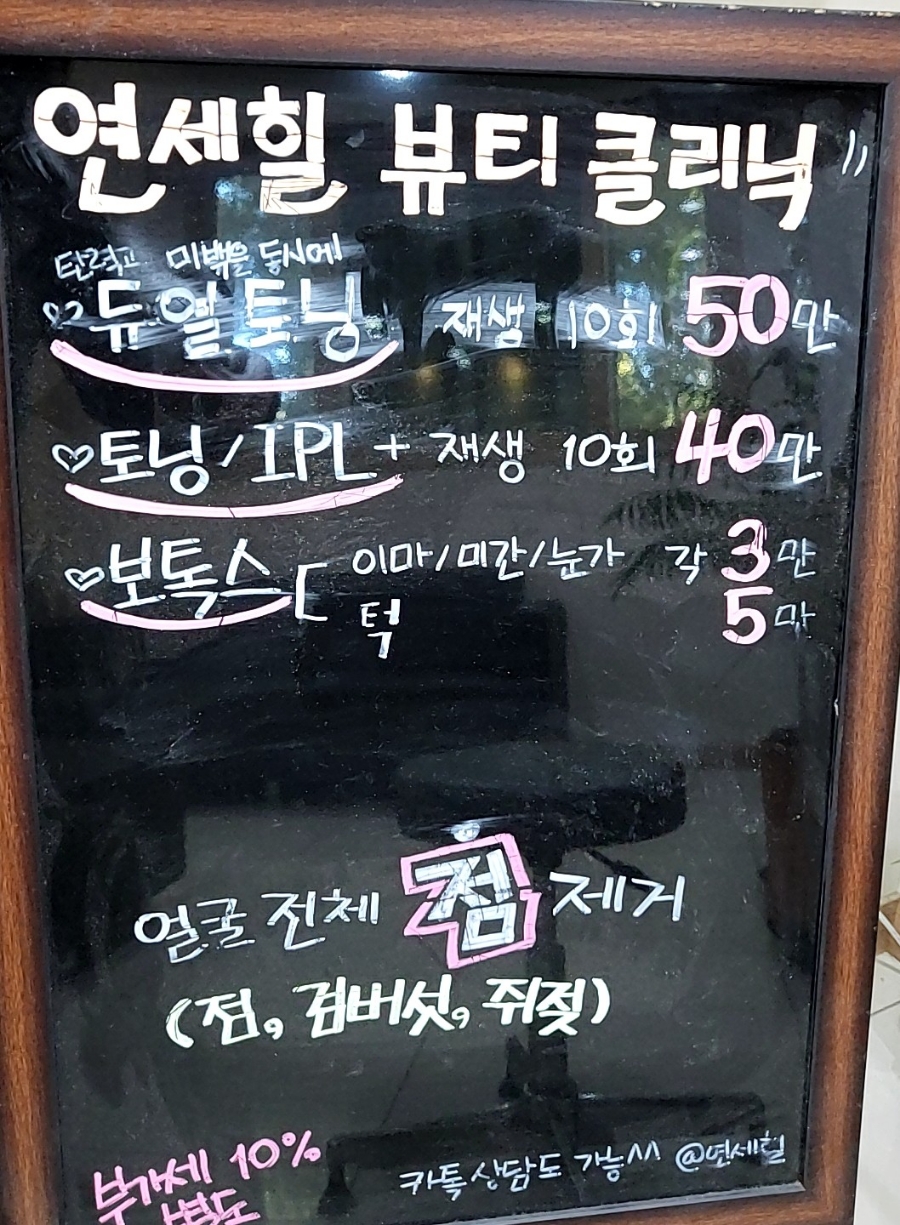 연세힐 뷰티 클리닉 "
탄력과 미백을 동시에
♡ 듀얼토닝 재생 10회 50만
♡ 토닝/IPL + 재생 10회 40만
♡ 보톡스 [ 이마/미간/눈가 각 3만
턱 5만
얼굴 전체 점 제거
(점, 검버섯, 쥐젖)
부가세 10%
별도
카톡상담도 가능^^ @연세힐